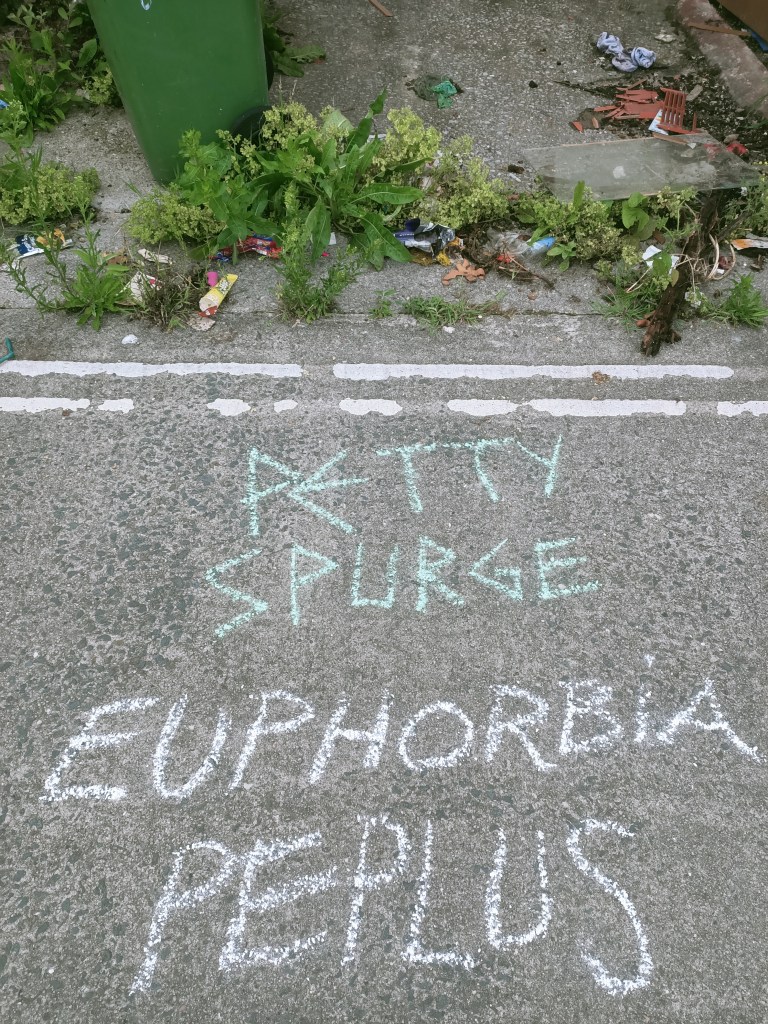 PETTY
SPURGE
EUPHORBiA
PEPLUS